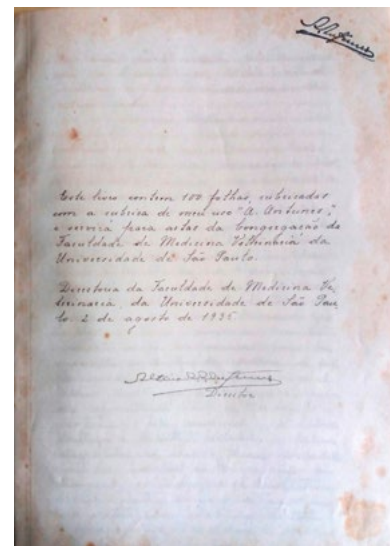 Este livro contem 100 folhas, rubricadas
com a rubrica de meu uso "A. Antunes",
e servirá para actas da Congregação da
Faculdade de Medicina Veterinaria da
Universidade de São Paulo.
Directoria da Faculdade de Medicina Ve-
terinaria, da Universidade de São Pau-
lo, 2 de agosto de 1935
Director